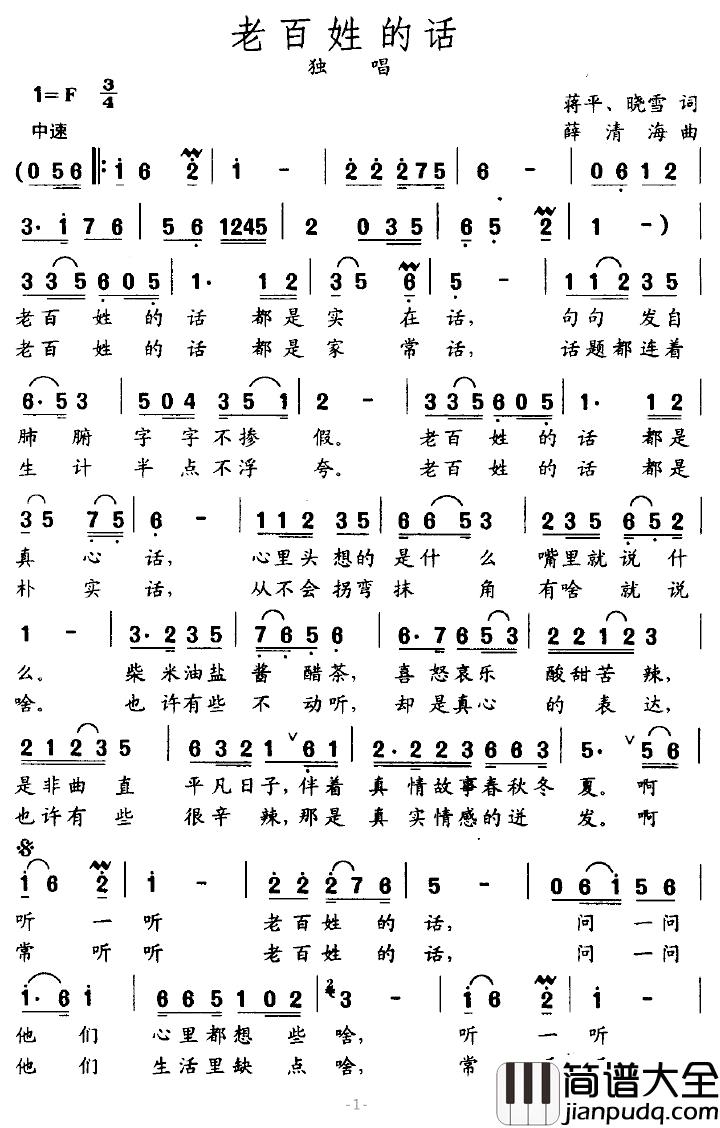 老百姓的话
独 唱
1=F 3/4
蒋平、晓雪 词
中速
薛清海 曲
(0 5 6 ‖: 1 6 2 | 1 - | 2 2 2 2 7 5 | 6 - | 0 6 1 2
3· 1 7 6 | 5 6 1245 | 2 0 3 5 | 6 5 2 | 1 - )
3 3 5 6 0 5 | 1· 1 2 | 3 5 6 | 5 - | 1 1 2 3 5
老百 姓 的 话 都是 实 在 话, 句句 发自
老百 姓 的 话 都是 家 常 话, 话题都连着
6· 5 3 | 5 0 4 3 5 1 | 2 - | 3 3 5 6 0 5 | 1· 1 2
肺 腑 字 字 不掺 假。 老百 姓 的 话 都是
生 计 半 点 不浮 夸。 老百 姓 的 话 都是
3 5 7 5 | 6 - | 1 1 2 3 5 | 6 6 5 3 | 2 3 5 6 5 2
真 心 话, 心里头 想的 是什 么 嘴里就 说 什
朴 实 话, 从不会 拐弯 抹 角 有啥 就 说
1 - | 3· 2 3 5 | 7 6 5 6 | 6· 7 6 5 3 | 2 2 1 2 3
么。 柴 米油盐 酱 醋茶, 喜 怒哀乐 酸甜苦 辣,
啥。 也 许有些 不 动听, 却 是真心 的 表 达,
2 1 2 3 5 | 6 3 2 1 6 1 | 2· 2 2 3 6 6 3 | 5· 5 6
是非曲 直 平凡日子,伴着 真 情故事春秋冬 夏。 啊
也许有 些 很辛 辣,那是 真 实情感的迸 发。 啊
𝄋
1 6 2 | 1 - | 2 2 2 7 6 | 5 - | 0 6 1 5 6
听 一 听 老百 姓 的 话, 问 一问
常 听 听 老百 姓 的 话, 问 一问
1· 6 1 | 6 6 5 1 0 2 | 3 - | 1 6 2 | 1 -
他 们 心里都 想 些 啥, 听 一 听
他 们 生活里 缺 点 啥, 常
-1-
简谱大全
jianpudq.com